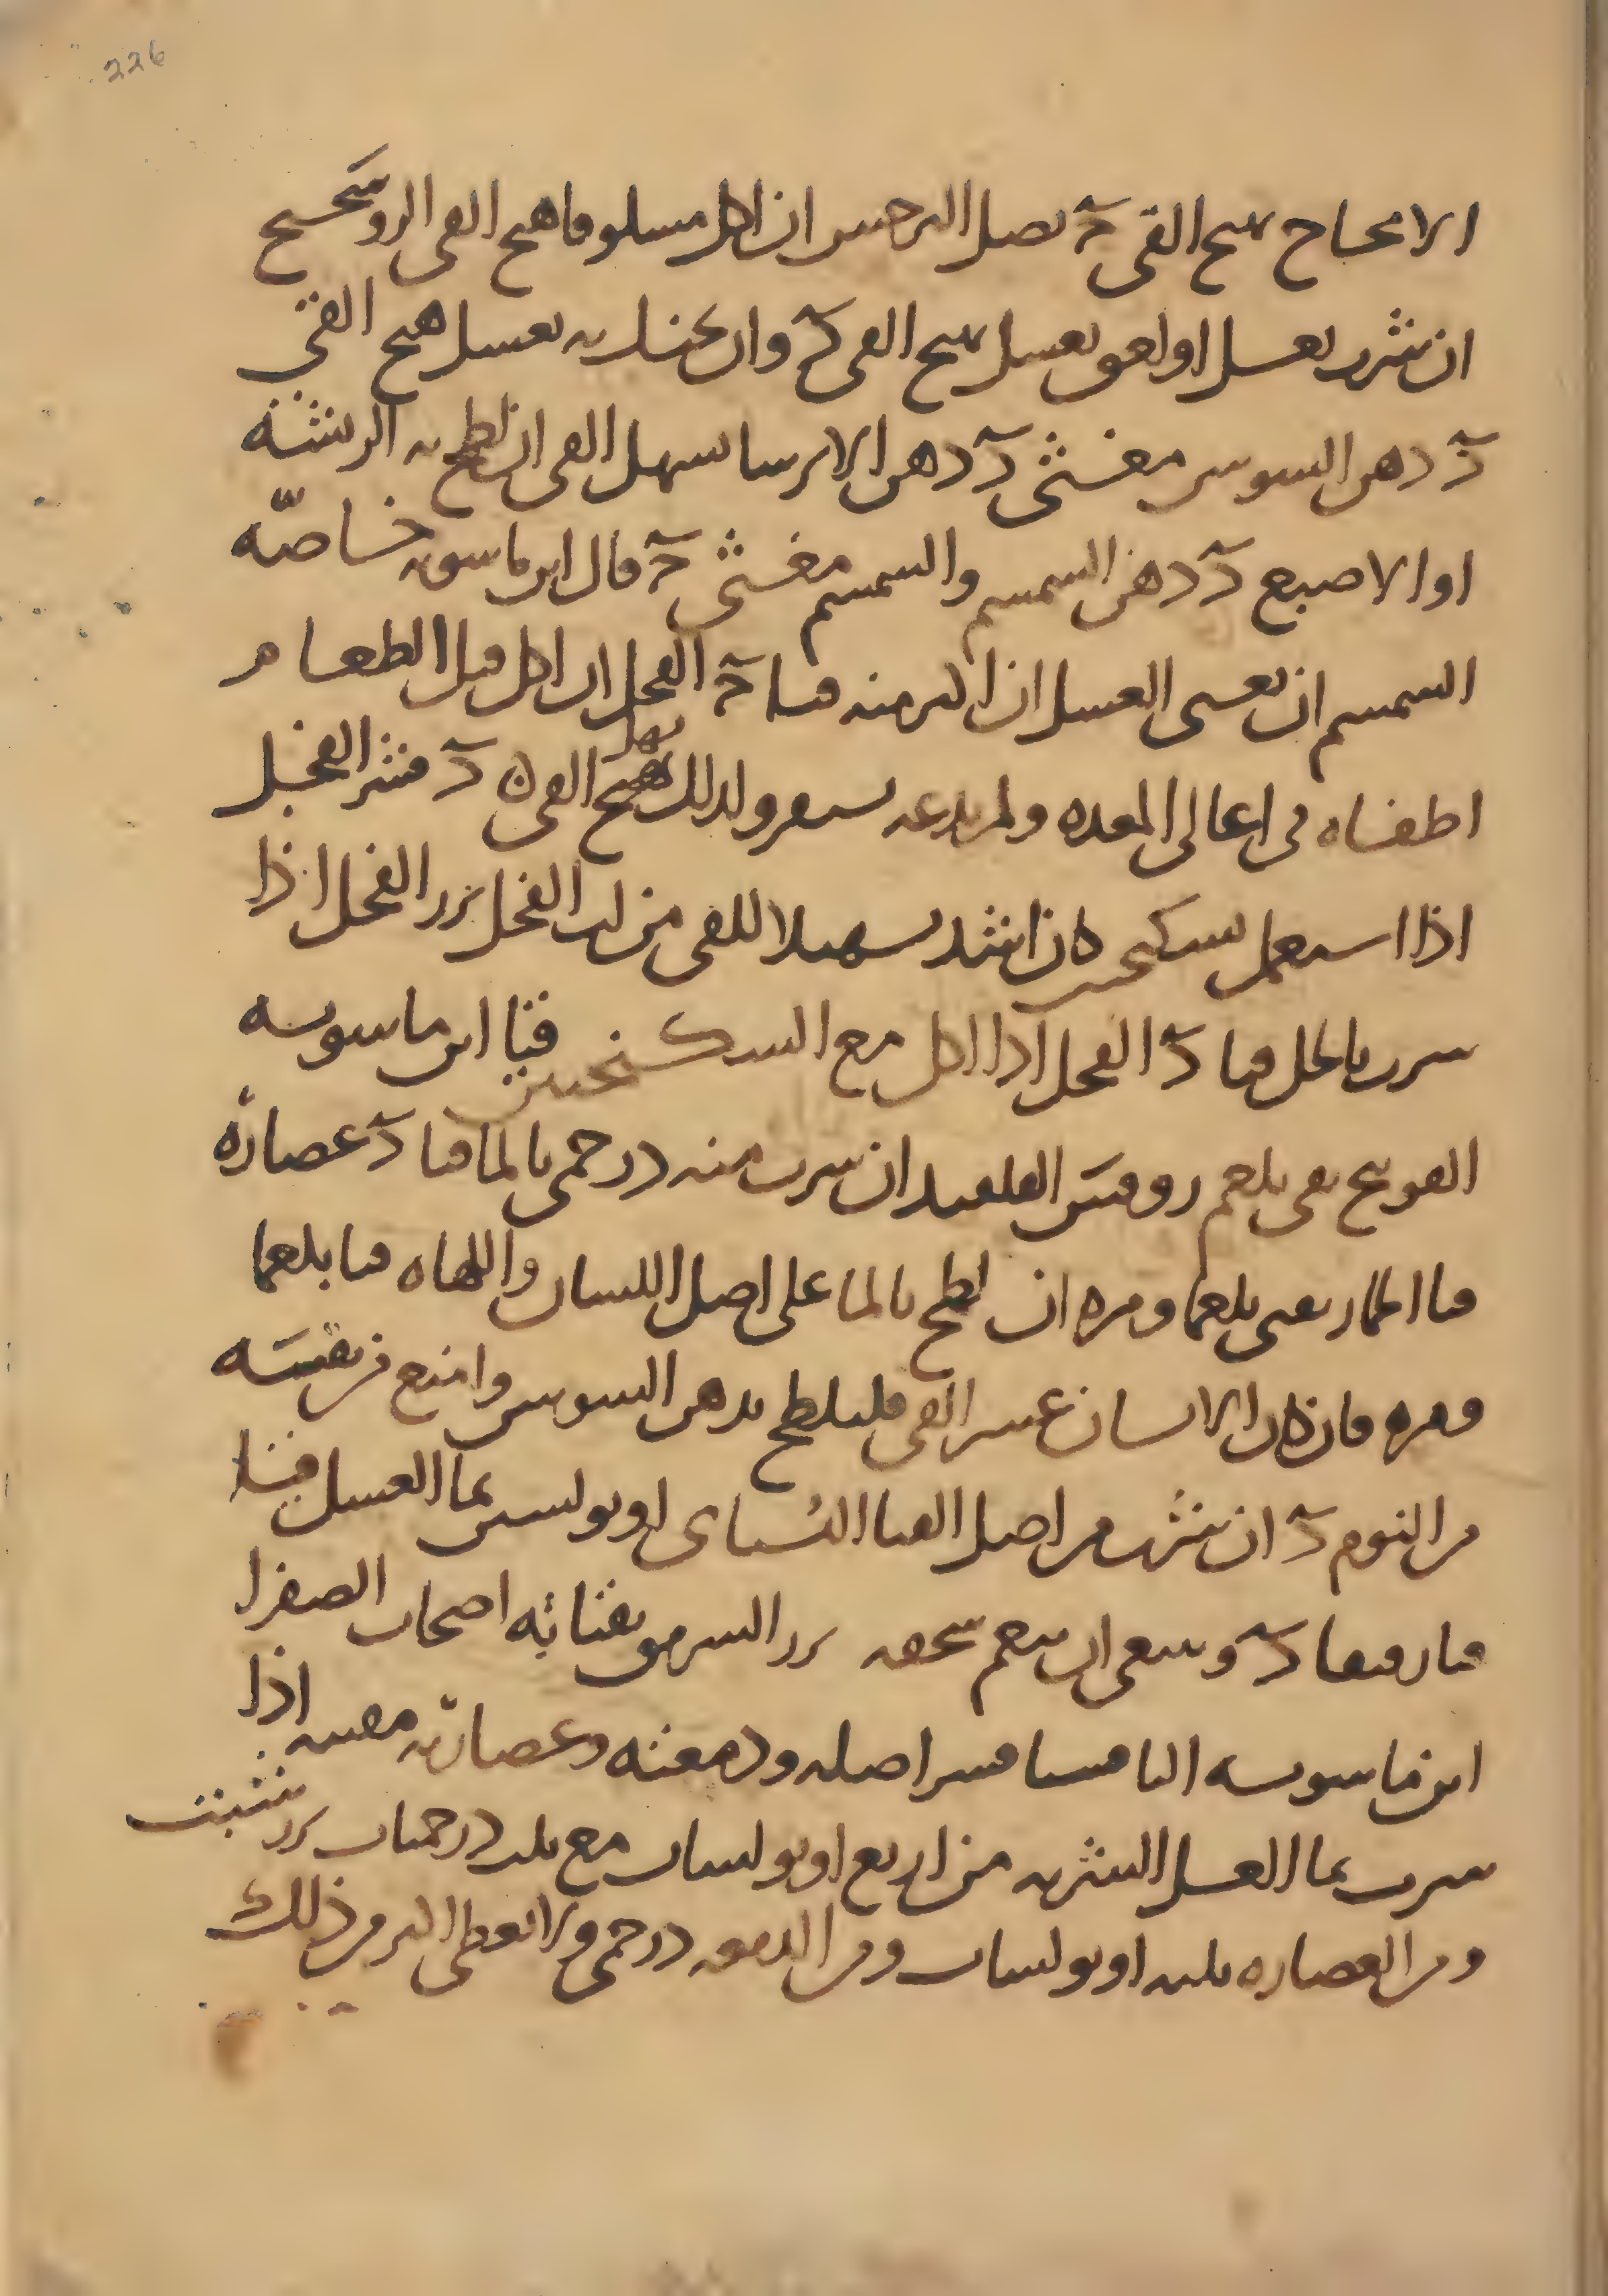 226
الامحاح هيج القى د بصل النرجس ان اكل مسلوقا هيج القى الروسختج
ان شرب بعسل او لعق بعسل هيج القى د وان تحنك به بعسل هيج القى
د دهن السوسن مغثى د دهن الايرسا يسهل القى ان لطخ به الريشة
او الاصبع د دهن السمسم والسمسم مغثى د قال ابن ماسويه خاصّه
السمسم ان يغثى العسل ان اكثر منه قيا د الفجل ان اكل قبل الطعام
اطفاه فى اعالى المعده ولم يدعه يستقر ولذلك يسهل القى د قشر الفجل
اذا استعمل بسكنجبين كان اشد تسهيلا للقى من لب الفجل بزر الفجل اذا
شرب بالخل قيا د الفجل اذا اكل مع السكنجبين قيا ابن ماسويه
الفوتنج يقى بلغم روفس القلقند ان شرب منه درخمى بالما قيا د عصارة
قثا الحمار يقى بلغما ومره ان لطخ بالما على اصل اللسان واللهاه قيا بلغما
ومره فان كان الانسان عسر القى فليلطخ بدهن السوسن وامنع من تقيئه
من النوم د ان شرب من اصل القثا البستانى اوبولسين بما العسل قيا
قيا رفيقا د وينبغى ان ينعم سحقه بزر السرمق يقيا به اصحاب الصفرا
ابن ماسويه الثافسيا قشر اصله ودمعته وعصارته مقييه اذا
شرب بما العسل الشربه من اربع اوبولسات مع ثلث درخميات بزر شبت
ومن العصاره ثلثه اوبولسات ومن الدمعه درخمى ولا تعطى اكثر من ذلك